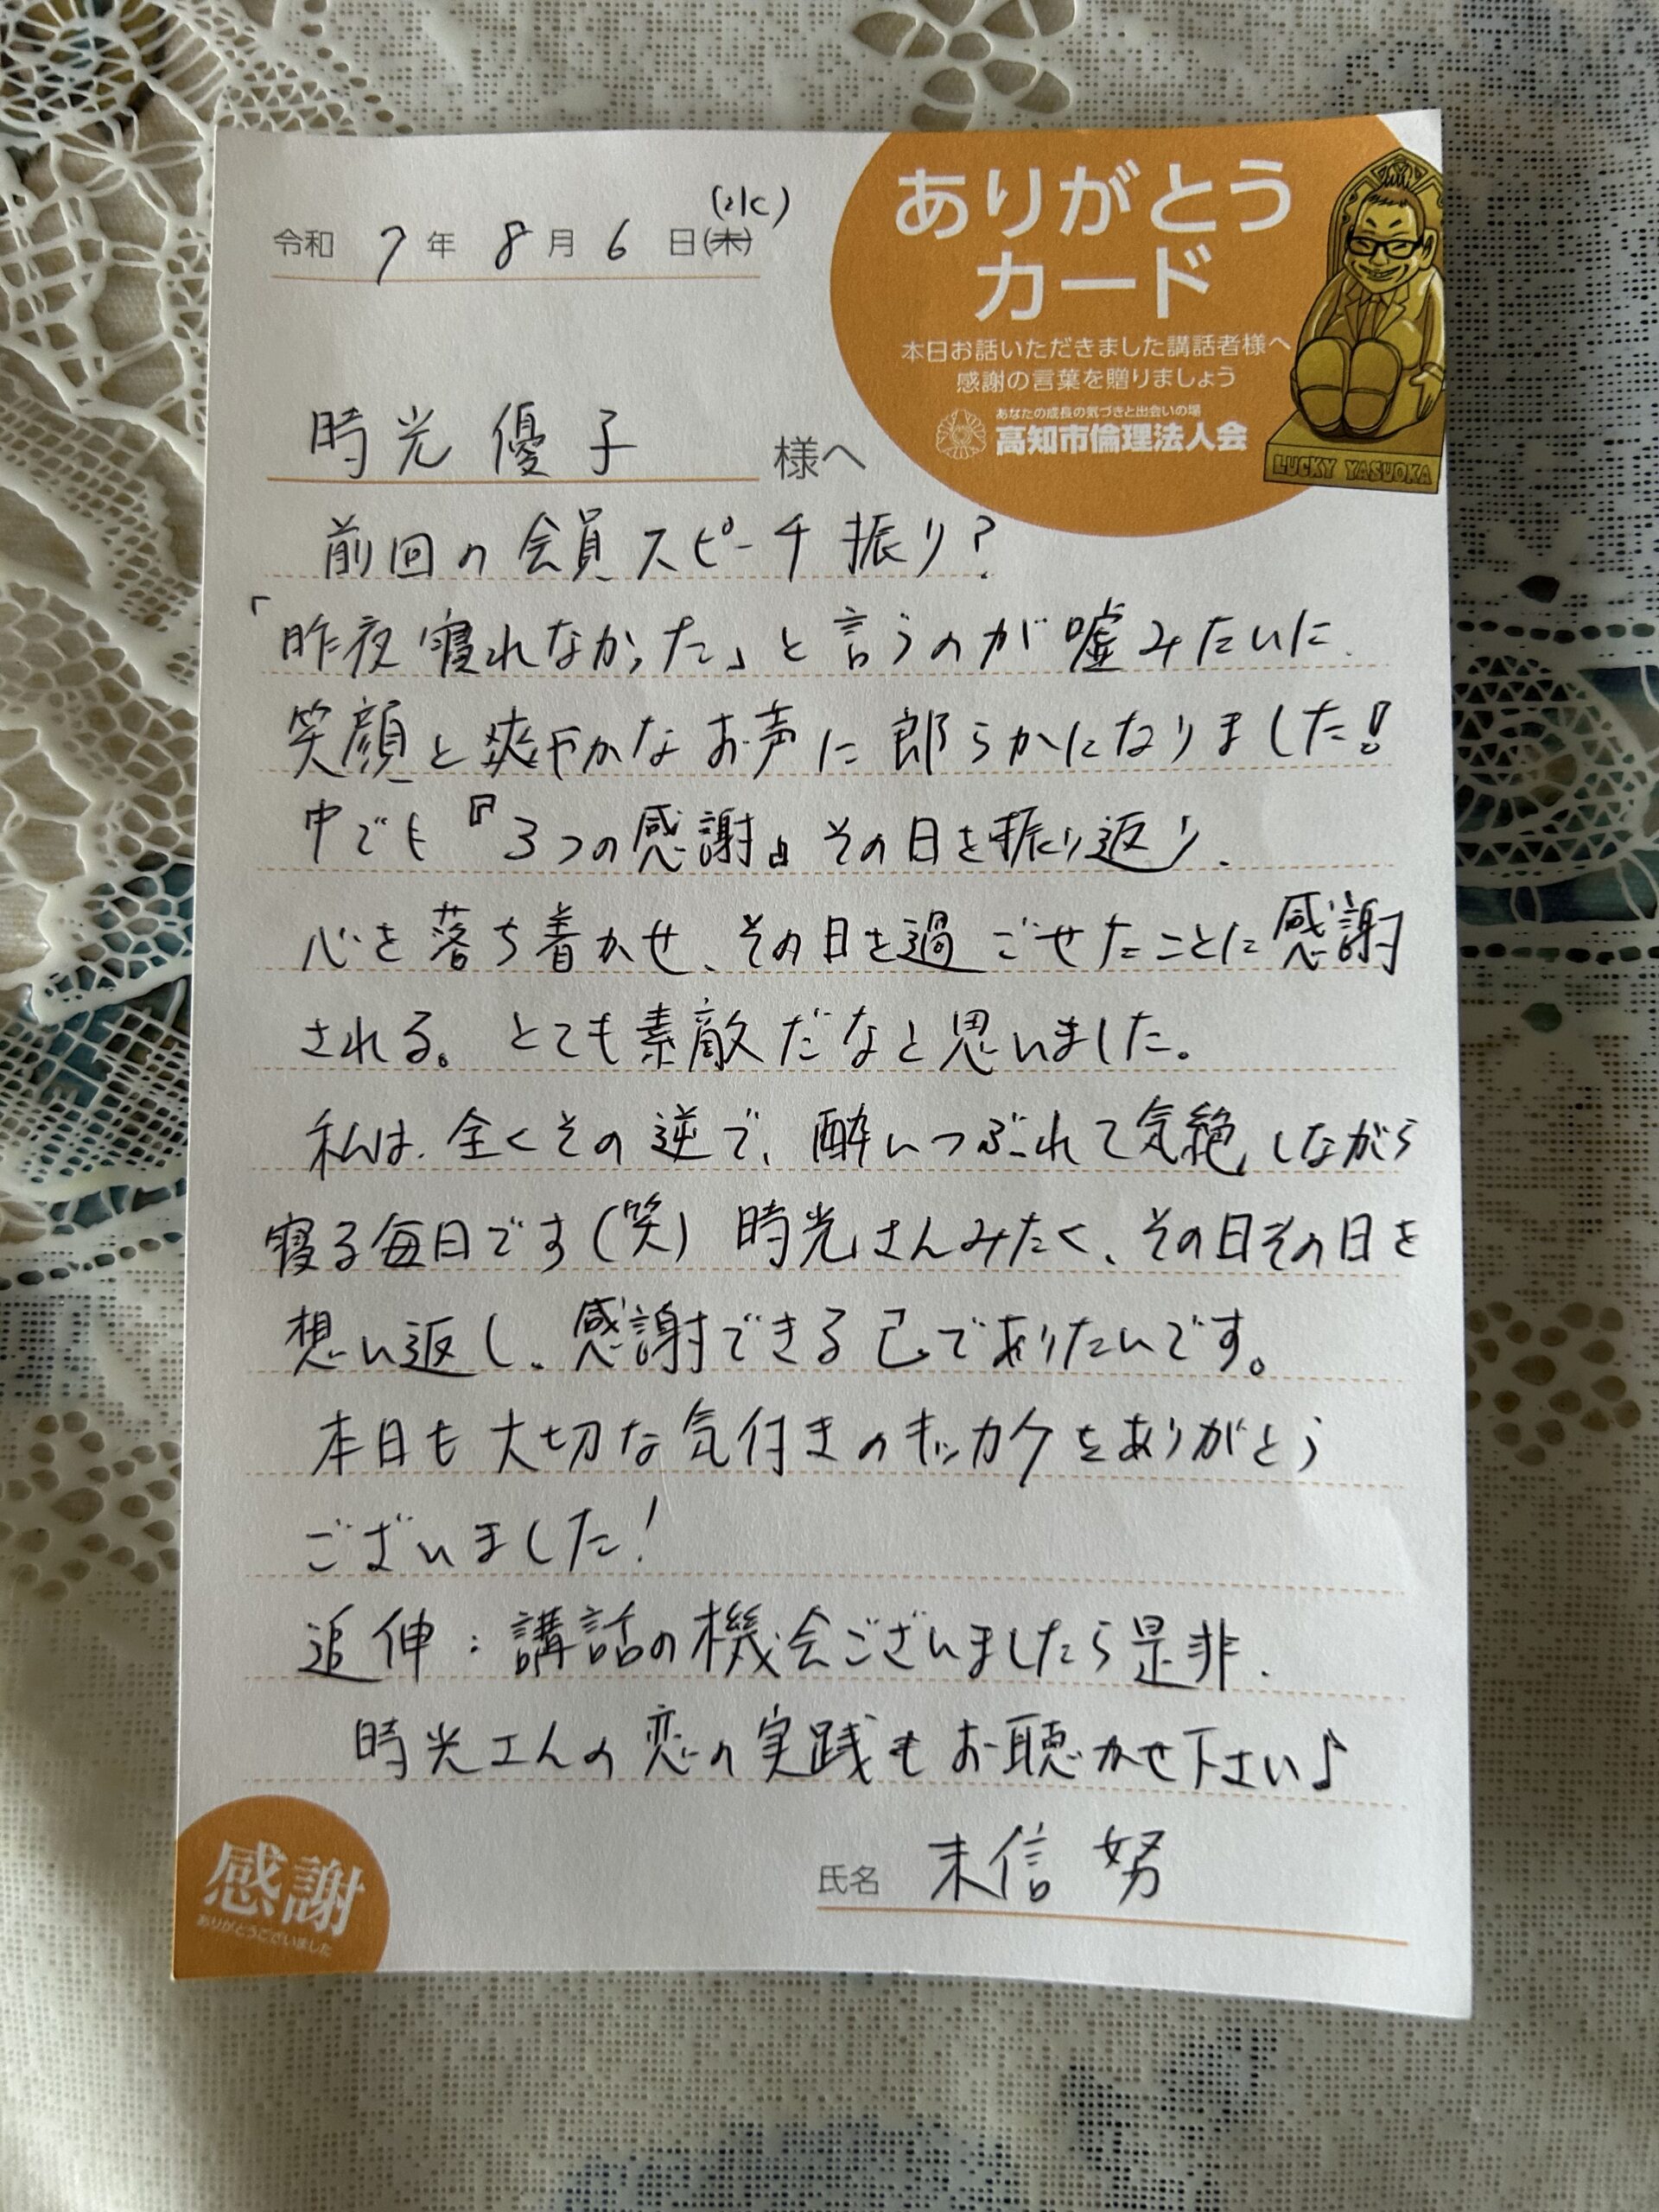 ありがとう
カード
本日お話いただきました講話者様へ
感謝の言葉を贈りましょう
あなたの成長の気づきと出会いの場
高知市倫理法人会
LUCKY YASUOKA
(水)
令和 7 年 8 月 6 日(木)
時光 優子 様へ
前回の会員スピーチ振り?
「昨夜寝れなかった」と言うのが嘘みたいに、
笑顔と爽やかなお声に郎らかになりました!
中でも『3つの感謝』その日を振り返り、
心を落ち着かせ、その日を過ごせたことに感謝
される。とても素敵だなと思いました。
私は、全くその逆で、酔いつぶれて気絶しながら
寝る毎日です(笑) 時光さんみたく、その日その日を
想い返し、感謝できる己でありたいです。
本日も大切な気付きのキッカケをありがとう
ございました!
追伸:講話の機会ございましたら是非、
時光さんの恋の実践もお聴かせ下さい♪
氏名 末信 努
感謝
ありがとうございました